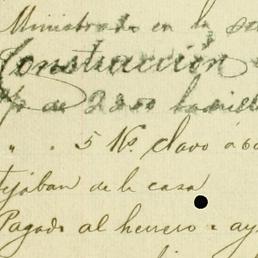 Ministrado en la
Construcción
de 2200 ladrill
" " 5 Ks. clavo á 60
tejában de la casa
Pagado al herrero